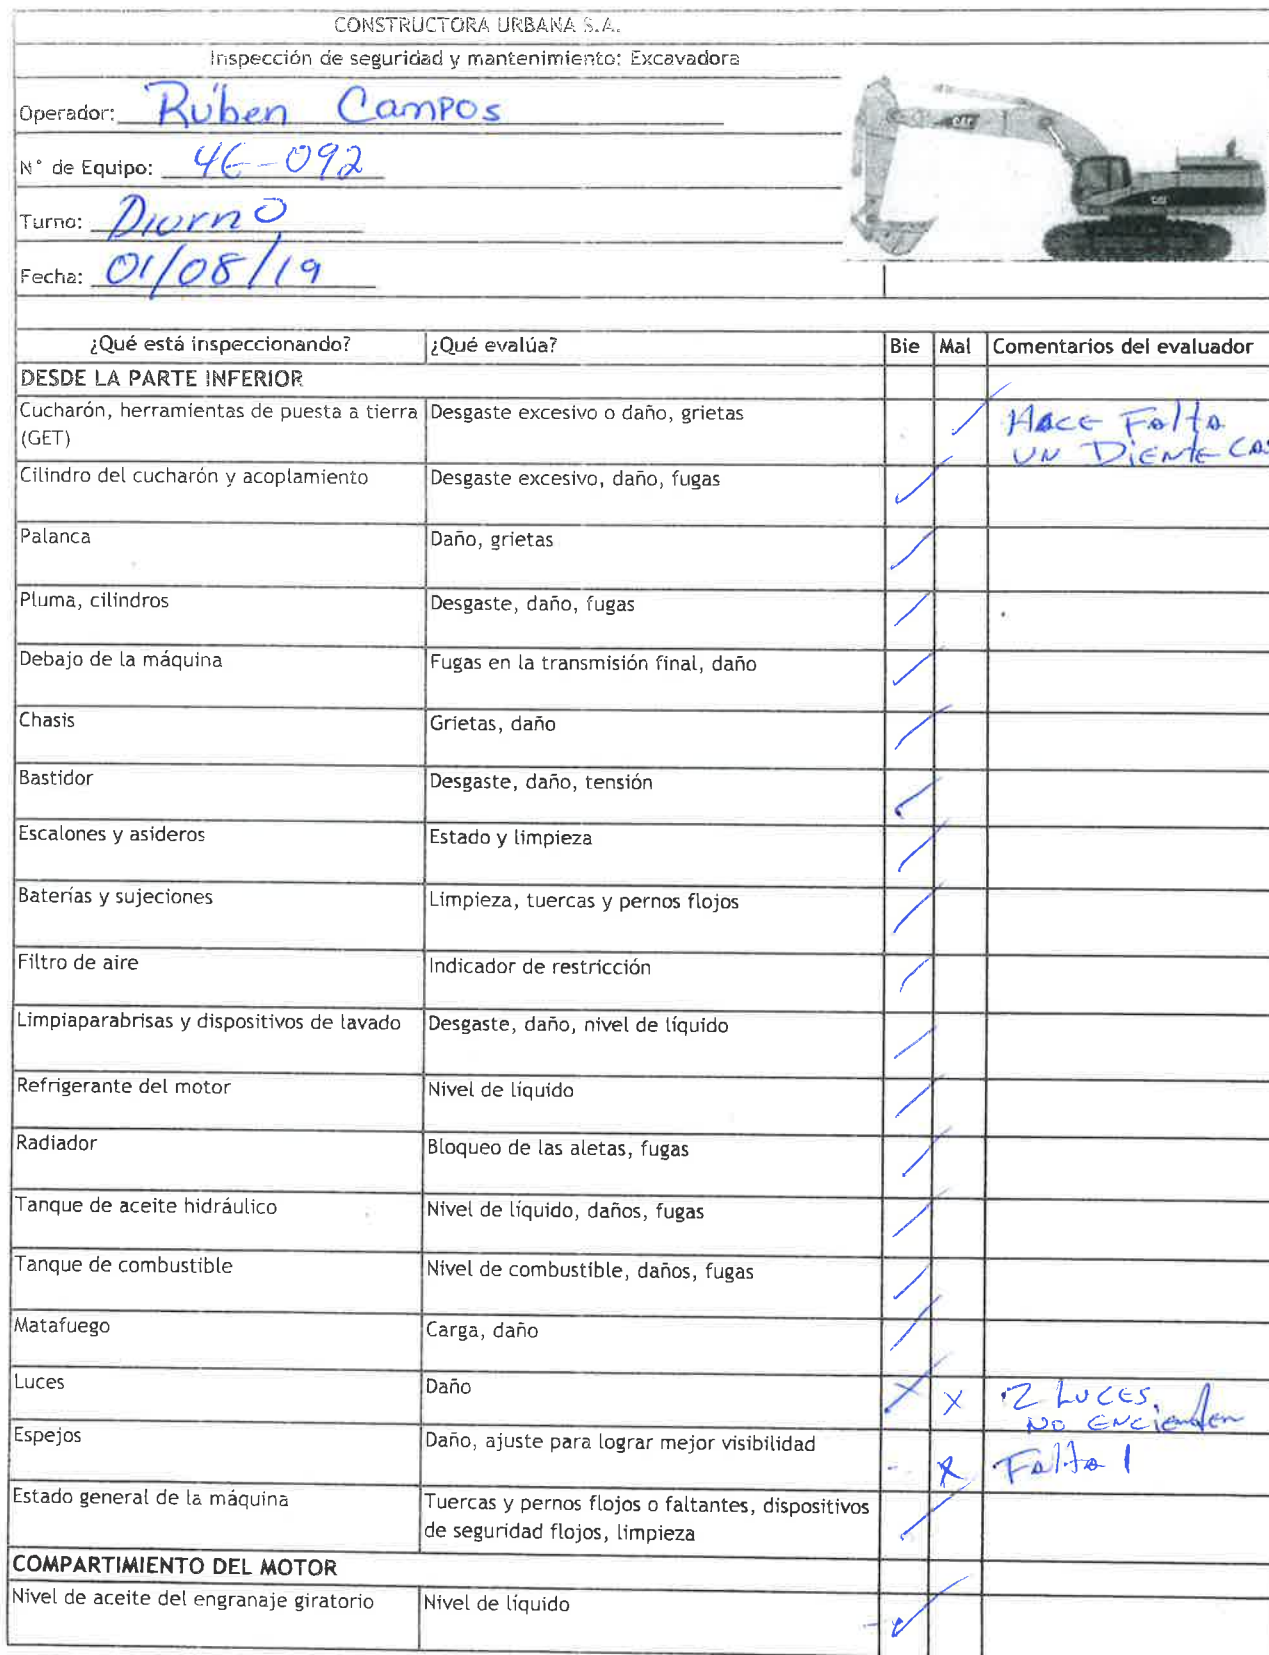 CONSTRUCTORA URBANA S.A.
Inspección de seguridad y mantenimiento: Excavadora
Operador: Rúben Campos
N° de Equipo: 4E-092
Turno: Diurno
Fecha: 01/08/19
¿Qué está inspeccionando? ¿Qué evalúa? Bie Mal Comentarios del evaluador
DESDE LA PARTE INFERIOR
Cucharón, herramientas de puesta a tierra Desgaste excesivo o daño, grietas Hace Falta
(GET) UN DIENTE
Cilindro del cucharón y acoplamiento Desgaste excesivo, daño, fugas
Palanca Daño, grietas
Pluma, cilindros Desgaste, daño, fugas
Debajo de la máquina Fugas en la transmisión final, daño
Chasis Grietas, daño
Bastidor Desgaste, daño, tensión
Escalones y asideros Estado y limpieza
Baterías y sujeciones Limpieza, tuercas y pernos flojos
Filtro de aire Indicador de restricción
Limpiaparabrisas y dispositivos de lavado Desgaste, daño, nivel de líquido
Refrigerante del motor Nivel de líquido
Radiador Bloqueo de las aletas, fugas
Tanque de aceite hidráulico Nivel de líquido, daños, fugas
Tanque de combustible Nivel de combustible, daños, fugas
Matafuego Carga, daño
Luces Daño X X 2 LUCES.
NO ENCienden
Espejos Daño, ajuste para lograr mejor visibilidad X Falta 1
Estado general de la máquina Tuercas y pernos flojos o faltantes, dispositivos
de seguridad flojos, limpieza
COMPARTIMIENTO DEL MOTOR
Nivel de aceite del engranaje giratorio Nivel de líquido